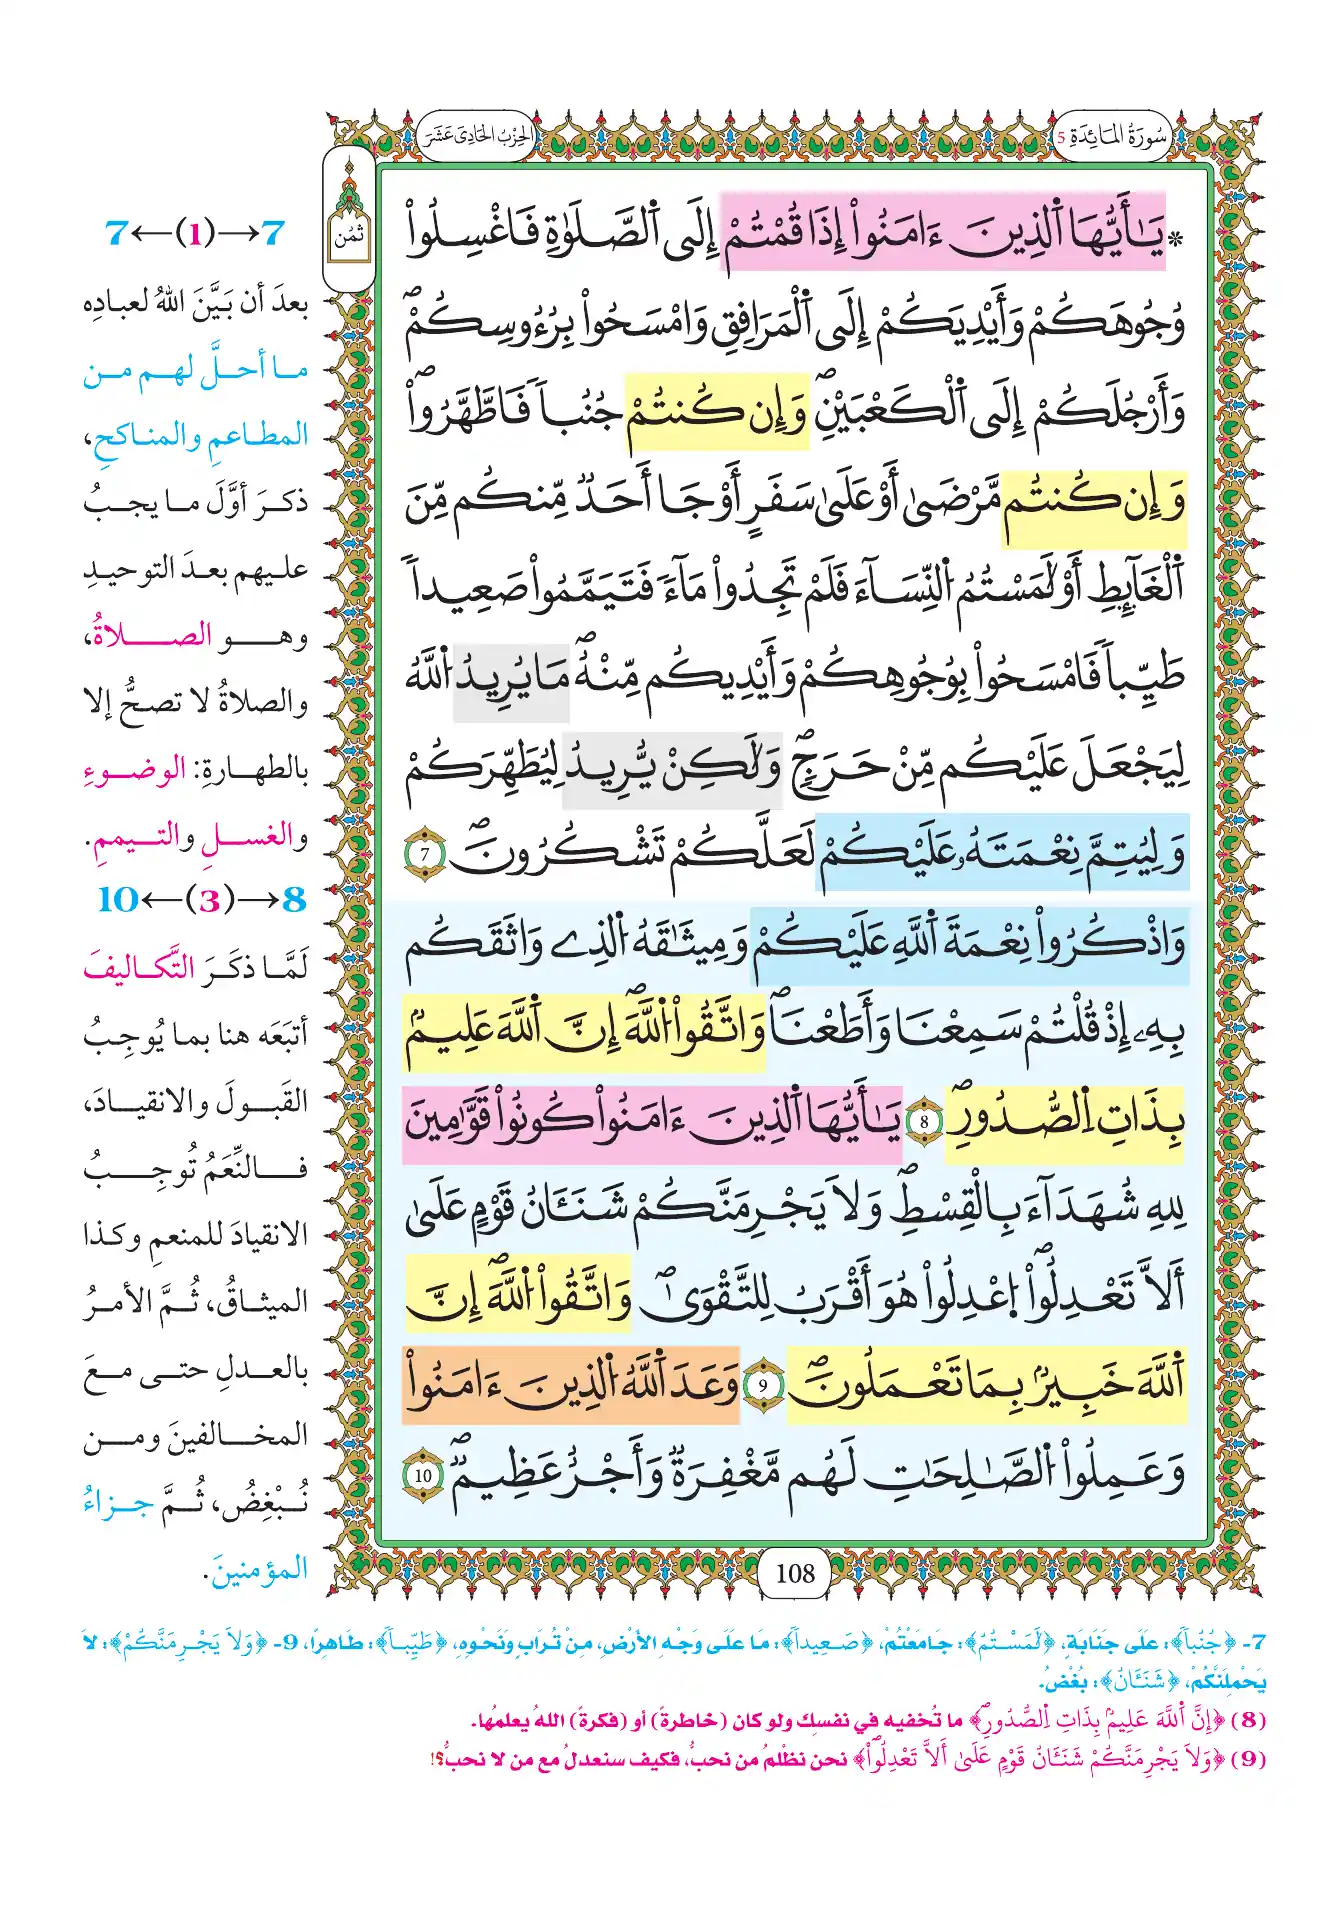 سُورَةُ المَائِدَةِ 5
الحِزْبُ الحَادِي عَشَرَ
ثُمُن
* يَٰأَيُّهَا اَ۬لذِينَ ءَامَنُواْ إِذَا قُمْتُمْ إِلَى اَ۬لصَّلَوٰةِ فَاغْسِلُواْ
وُجُوهَكُمْ وَأَيْدِيَكُمْ إِلَى اَ۬لْمَرَافِقِ وَامْسَحُواْ بِرُءُوسِكُمْ
وَأَرْجُلَكُمْ إِلَى اَ۬لْكَعْبَيْنِ وَإِن كُنتُمْ جُنُباً فَاطَّهَّرُواْ
وَإِن كُنتُم مَّرْضَىٰ أَوْ عَلَىٰ سَفَرٍ أَوْ جَا أَحَدٞ مِّنكُم مِّنَ
اَ۬لْغَآئِطِ أَوْ لَٰمَسْتُمُ اُ۬لنِّسَآءَ فَلَمْ تَجِدُواْ مَآءٗ فَتَيَمَّمُواْ صَعِيداٗ
طَيِّباٗ فَامْسَحُواْ بِوُجُوهِكُمْ وَأَيْدِيكُم مِّنْهُ مَا يُرِيدُ اُ۬للَّهُ
لِيَجْعَلَ عَلَيْكُم مِّنْ حَرَجٖ وَلَٰكِنْ يُّرِيدُ لِيُطَهِّرَكُمْ
وَلِيُتِمَّ نِعْمَتَهُۥ عَلَيْكُمْ لَعَلَّكُمْ تَشْكُرُونَ 7
وَاذْكُرُواْ نِعْمَةَ اَ۬للَّهِ عَلَيْكُمْ وَمِيثَٰقَهُ اُ۬لذِے وَاثَقَكُم
بِهِۦ إِذْ قُلْتُمْ سَمِعْنَا وَأَطَعْنَا وَاتَّقُواْ اُ۬للَّهَ إِنَّ اَ۬للَّهَ عَلِيمُۢ
بِذَاتِ اِ۬لصُّدُورِ 8 يَٰأَيُّهَا اَ۬لذِينَ ءَامَنُواْ كُونُواْ قَوَّٰمِينَ
لِلهِ شُهَدَآءَ بِالْقِسْطِ وَلَا يَجْرِمَنَّكُمْ شَنَـَٔانُ قَوْمٍ عَلَىٰ
أَلَّا تَعْدِلُواْ اُ۪عْدِلُواْ هُوَ أَقْرَبُ لِلتَّقْوَىٰ وَاتَّقُواْ اُ۬للَّهَ إِنَّ
اَ۬للَّهَ خَبِيرُۢ بِمَا تَعْمَلُونَ 9 وَعَدَ اَ۬للَّهُ اُ۬لذِينَ ءَامَنُواْ
وَعَمِلُواْ اُ۬لصَّٰلِحَٰتِ لَهُم مَّغْفِرَةٞ وَأَجْرٌ عَظِيمٞ 10
108
7←(1)→7
بعدَ أن بَيَّنَ اللهُ لعبادِه
ما أحلَّ لهم من
المطاعمِ والمناكحِ،
ذكرَ أوَّلَ ما يجبُ
عليهم بعدَ التوحيدِ
وهو الصلاةُ،
والصلاةُ لا تصحُّ إلا
بالطهارةِ: الوضوءِ
والغسلِ والتيممِ.
10←(3)→8
لَمَّا ذكَرَ التَّكاليفَ
أتبَعَه هنا بما يُوجِبُ
القَبولَ والانقيادَ،
فالنِّعَمُ تُوجِبُ
الانقيادَ للمنعمِ وكذا
الميثاقُ، ثُمَّ الأمرُ
بالعدلِ حتى معَ
المخالفينَ ومن
نُبْغِضُ، ثُمَّ جزاءُ
المؤمنينَ.
7- ﴿جُنُباً﴾: عَلَى جَنَابَةٍ، ﴿لَٰمَسْتُمُ﴾: جَامَعْتُمْ، ﴿صَعِيداٗ﴾: مَا عَلَى وَجْهِ الأَرْضِ، مِنْ تُرَابٍ وَنَحْوِهِ، ﴿طَيِّباٗ﴾: طَاهِرًا، 9- ﴿وَلَا يَجْرِمَنَّكُمْ﴾: لَا
يَحْمِلَنَّكُمْ، ﴿شَنَـَٔانُ﴾: بُغْضُ.
(8) ﴿إِنَّ اَ۬للَّهَ عَلِيمُۢ بِذَاتِ اِ۬لصُّدُورِ﴾ ما تُخفيه في نفسِك ولو كان (خاطرةً) أو (فكرةً) اللهُ يعلمُها.
(9) ﴿وَلَا يَجْرِمَنَّكُمْ شَنَـَٔانُ قَوْمٍ عَلَىٰ أَلَّا تَعْدِلُواْ﴾ نحن نظْلمُ من نحبُّ، فكيف سنعدلُ مع من لا نحبُّ؟!